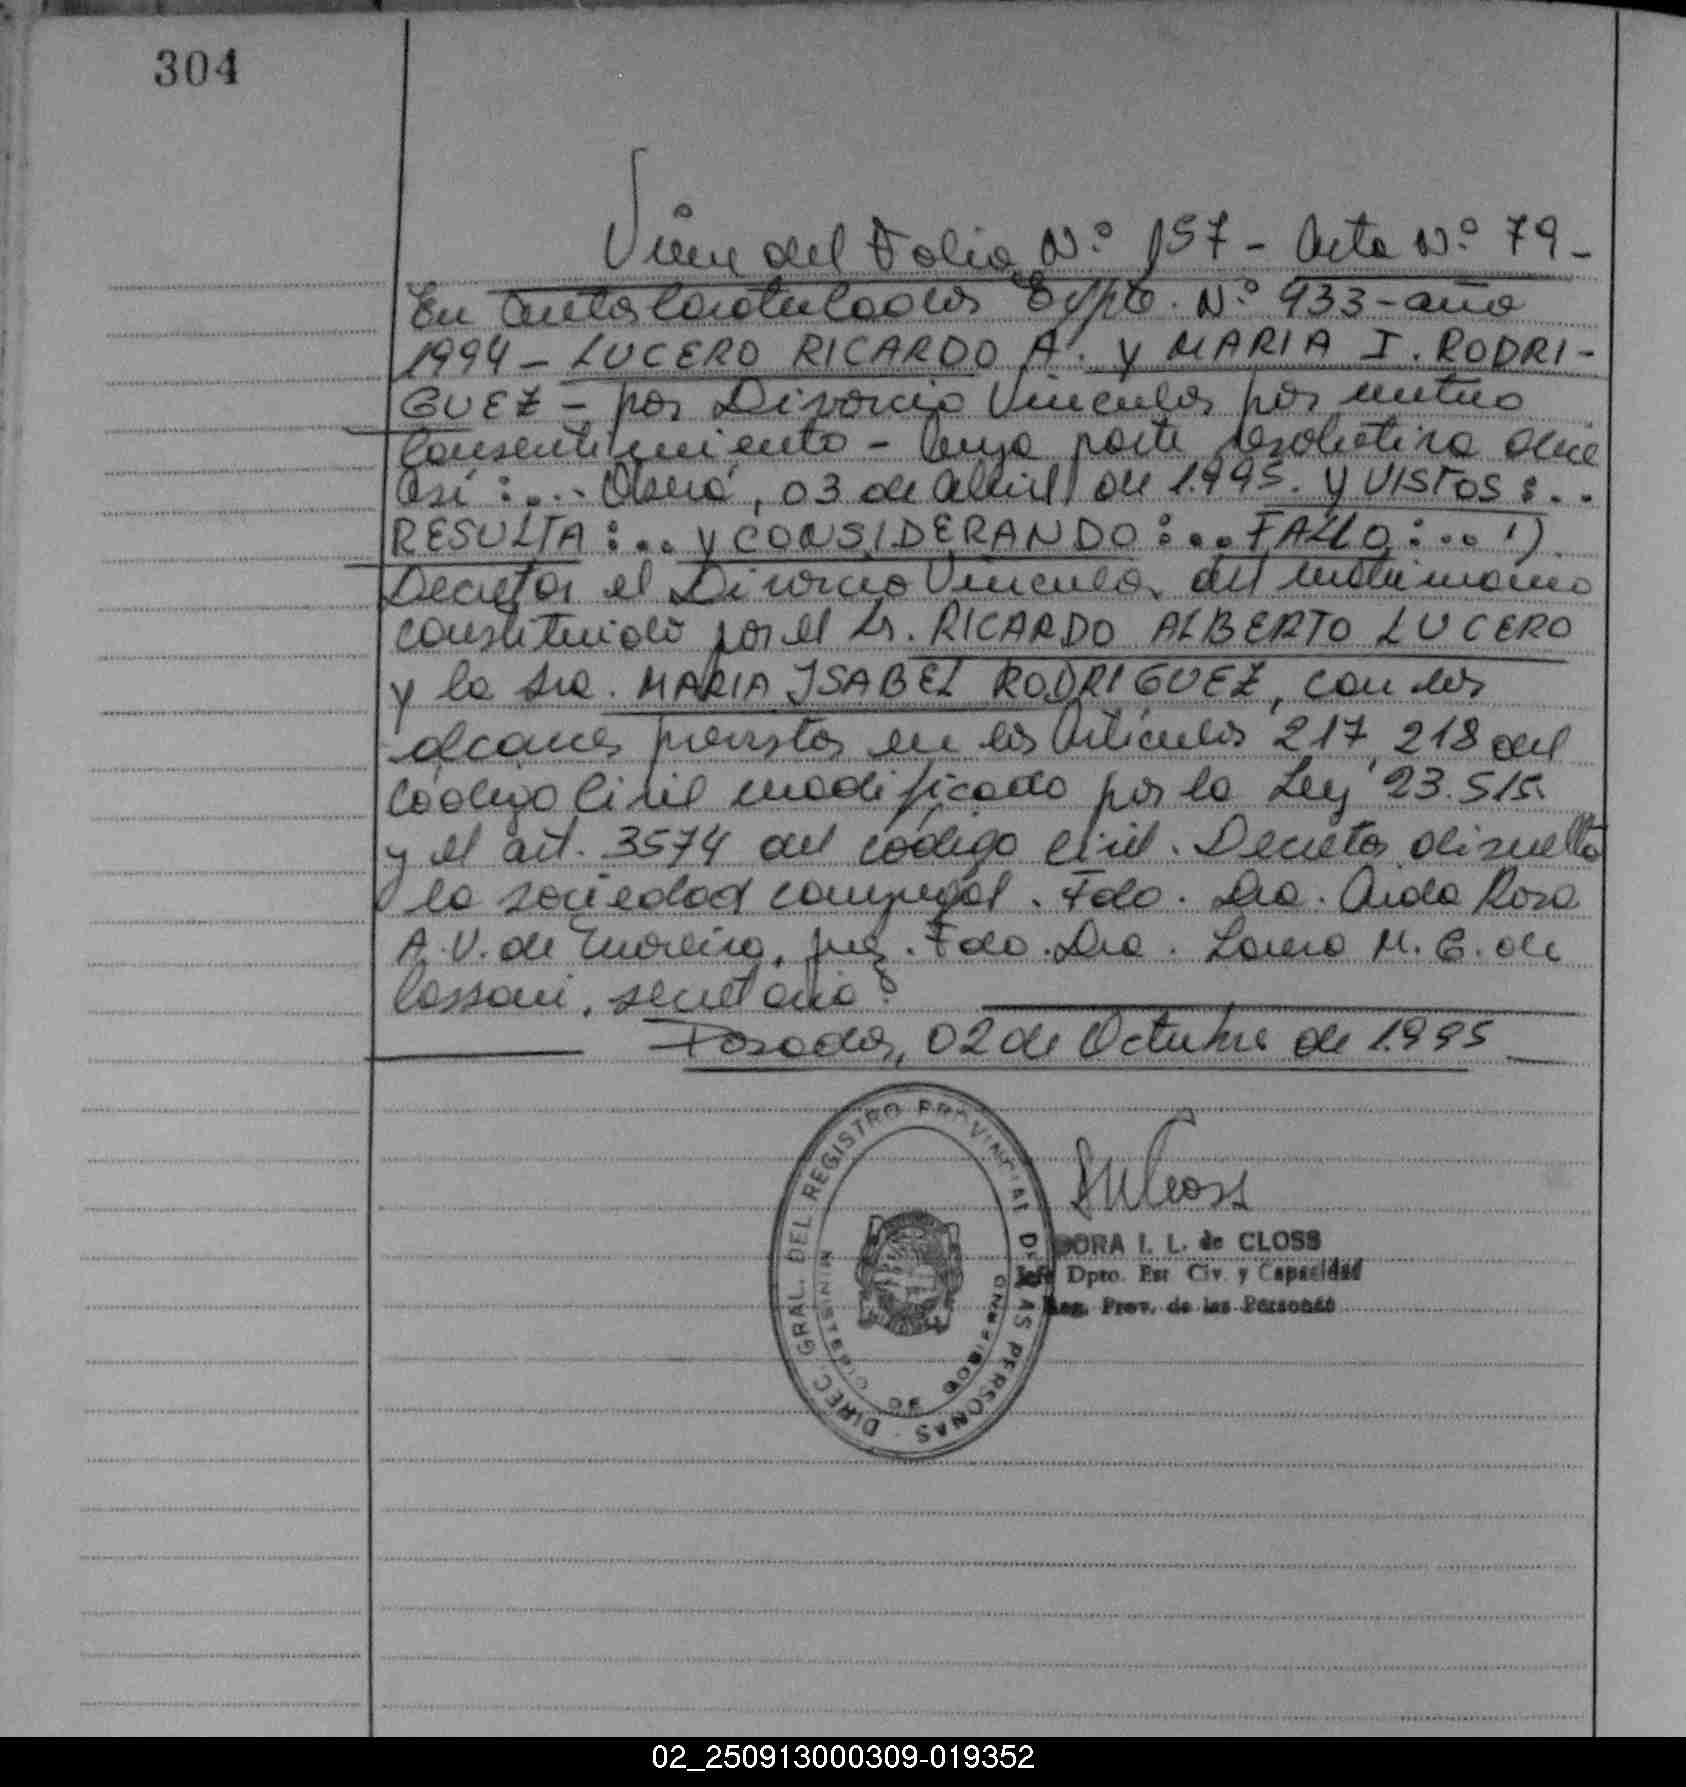 304
Viene del Folio N.º 157 - Acta N.º 79 -
En autos caratulados Expte. N.º 933 - año
1994 - LUCERO RICARDO A. y MARIA I. RODRI-
GUEZ - por Divorcio Vincular por mutuo
consentimiento - Cuya parte resolutiva dice
así :... Oberá, 03 de abril de 1.995. y VISTOS :..
RESULTA :.. y CONSIDERANDO :... FALLO :... 1)
Decretar el Divorcio Vincular del matrimonio
constituido por el Sr. RICARDO ALBERTO LUCERO
y la Sra. MARIA ISABEL RODRIGUEZ, con los
alcances previstos en los Artículos 217, 218 del
Código Civil modificado por la Ley 23.515.
y el art. 3574 del código civil. Decretar disuelta
la sociedad conyugal. Fdo. Dra. Aida Rosa
A. V. de Moreira, juez. Fdo. Dra. Laura M. C. de
Cassoni, secretaria.
Posadas, 02 de Octubre de 1.995
DIREC. GRAL. DEL REGISTRO PROVINCIAL DE LAS PERSONAS
MINISTERIO DE GOBIERNO
DORA I. L. de CLOSS
Jefe Dpto. Est. Civ. y Capacidad
Reg. Prov. de las Personas
02_250913000309-019352